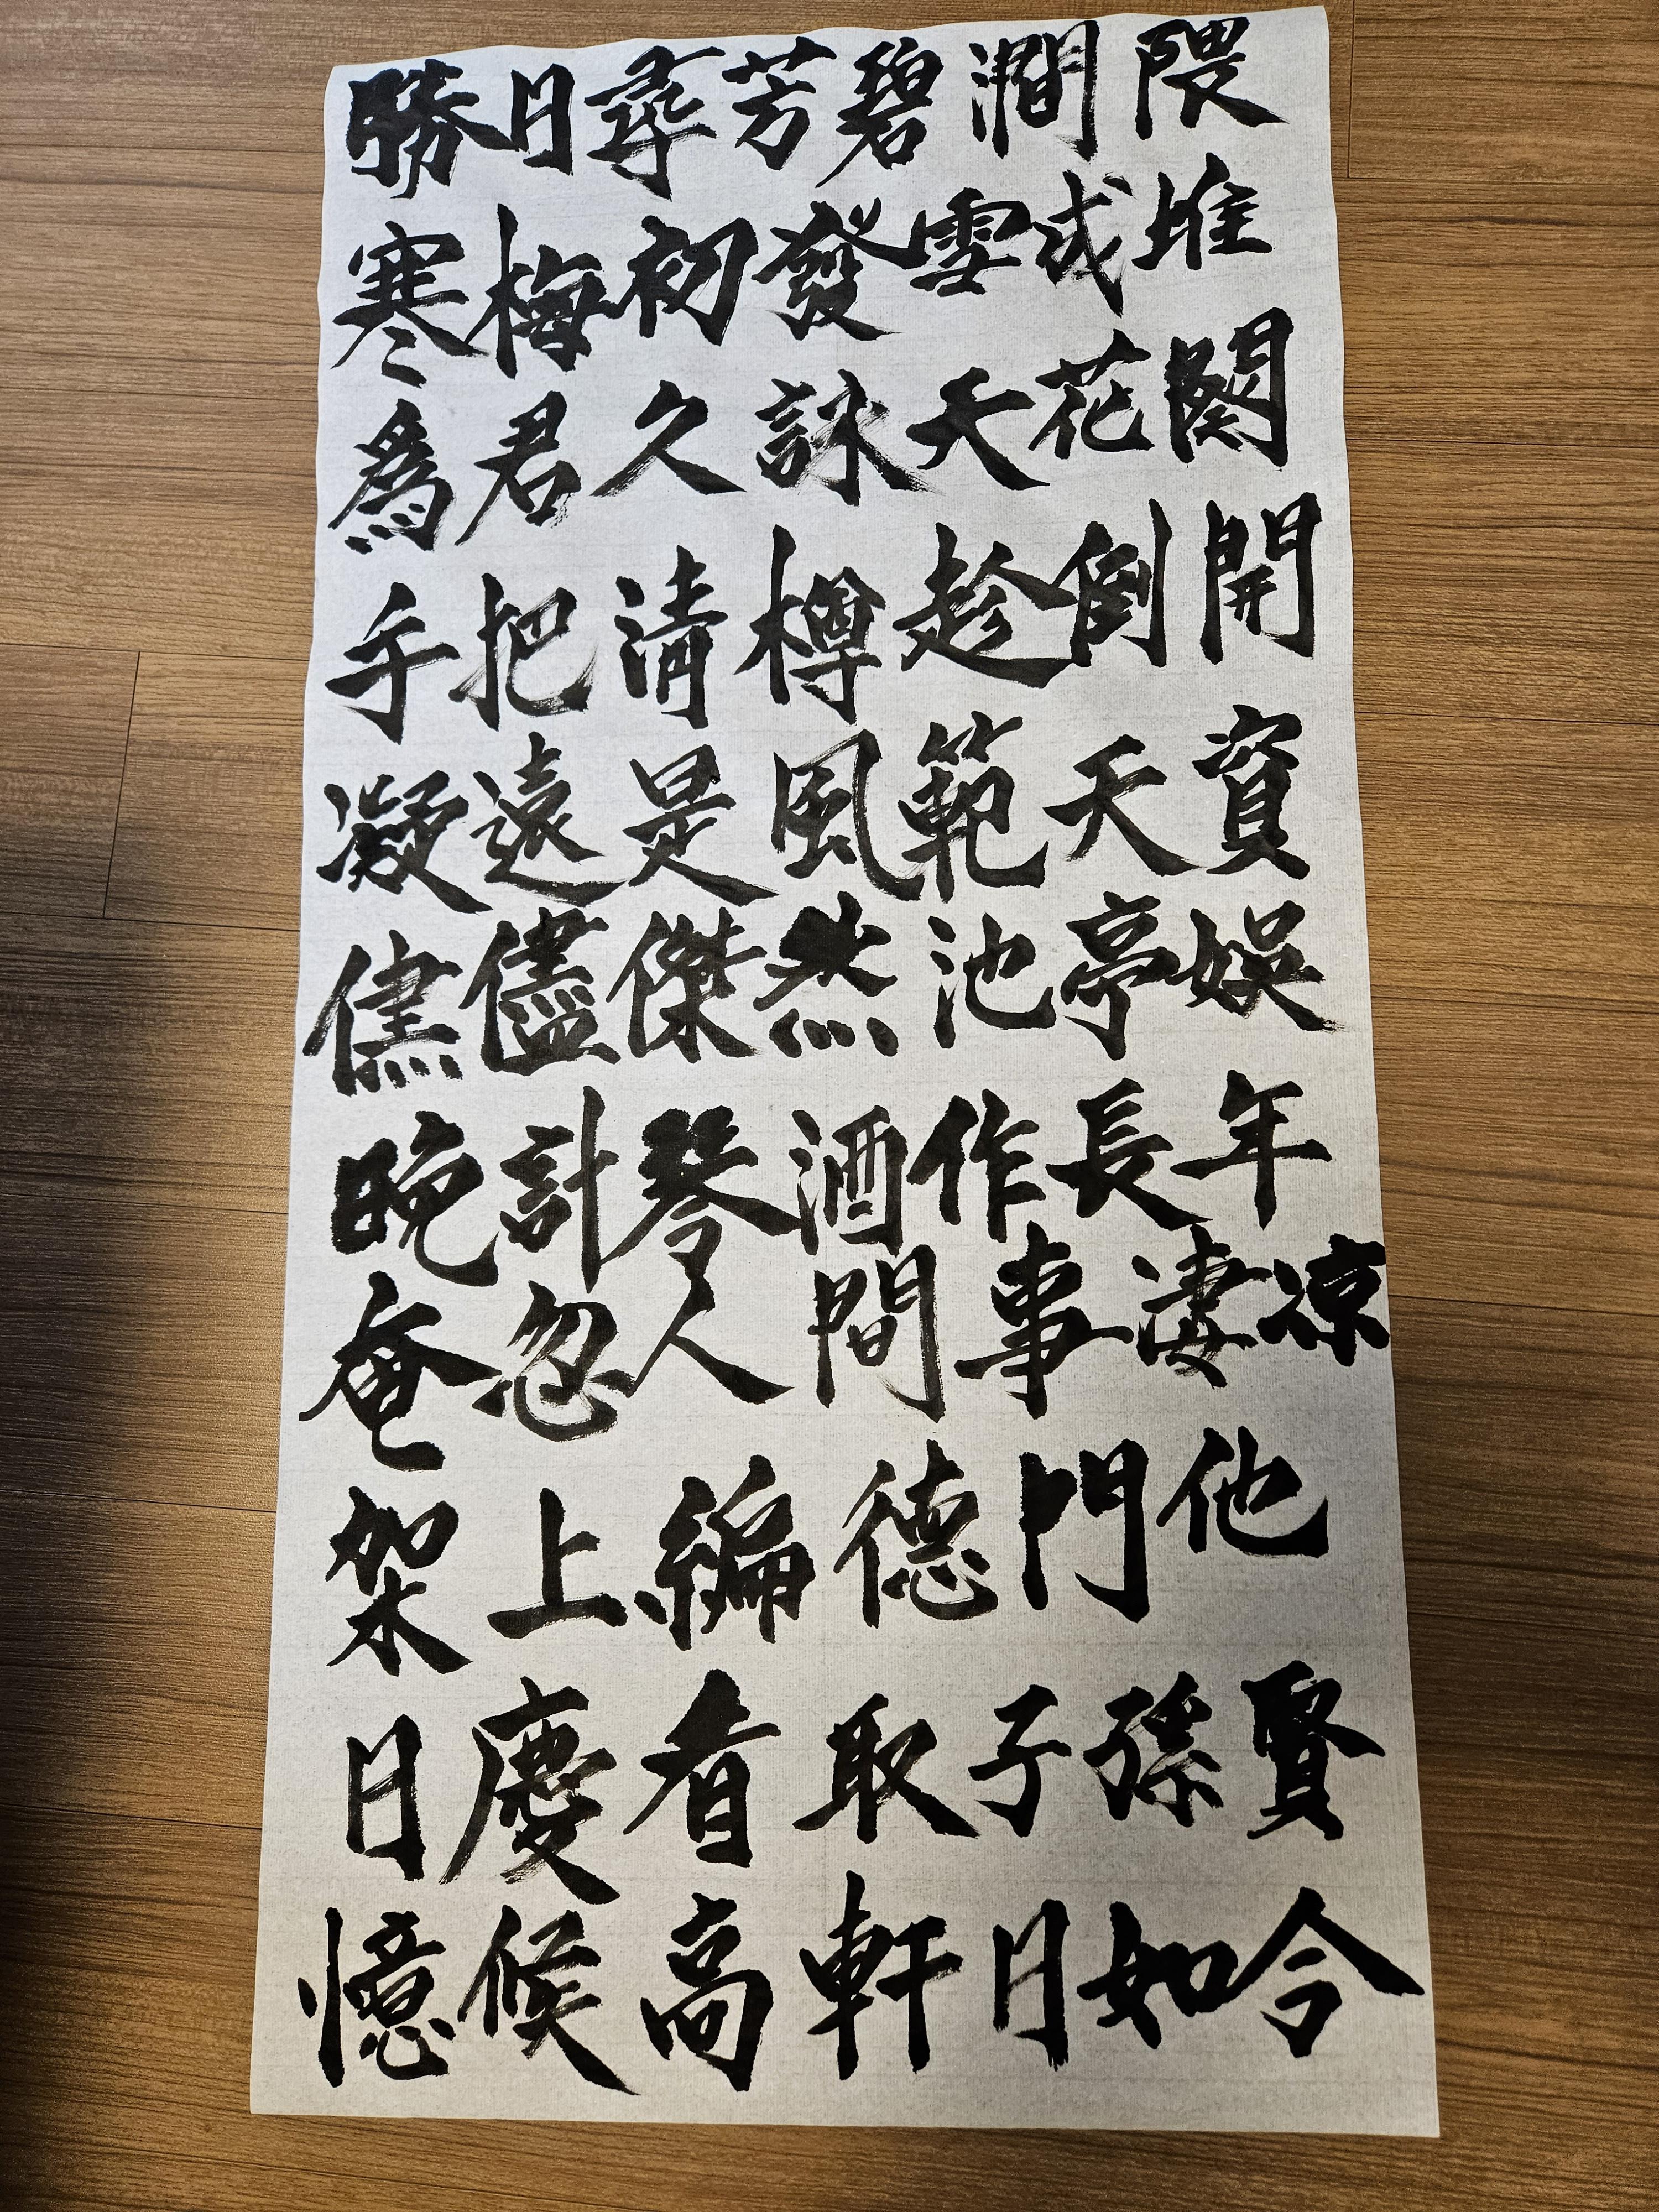 勝日尋芳碧澗隈
寒梅初發雪成堆
爲君久詠天花闋
手把清樽趁倒開
凝遠是風範天資
儘傑然池亭娛
晚計琴酒作長年
奄忽人間事淒凉
架上編德門他
日慶看取子孫賢
憶候高軒月如今